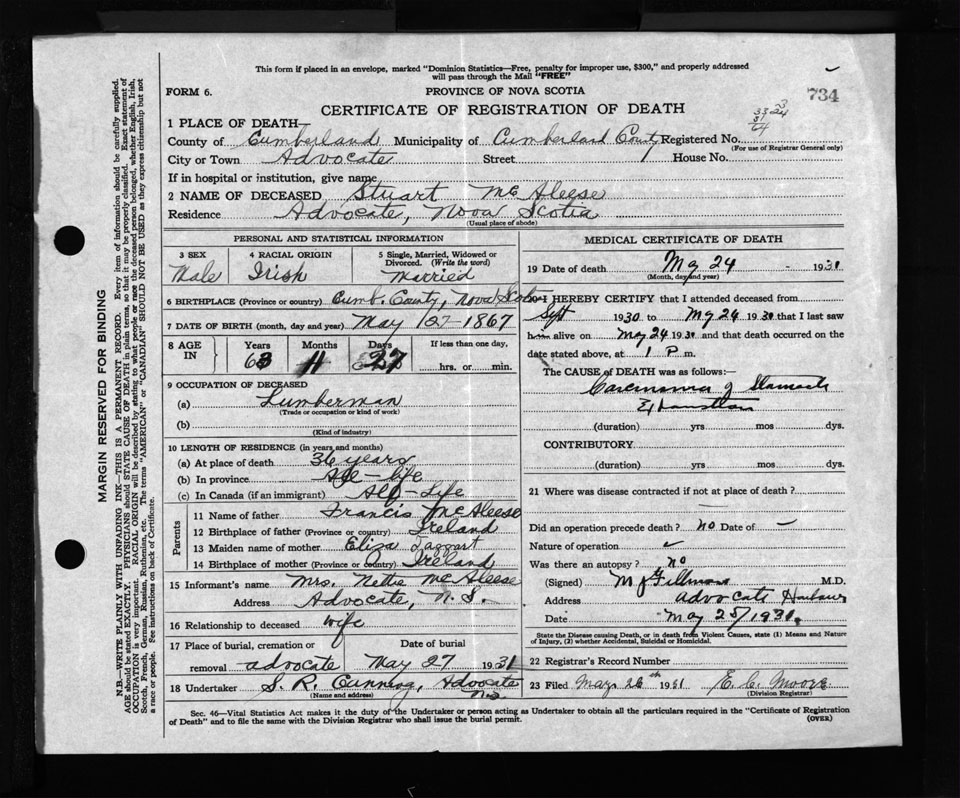 This form if placed in an envelope, marked "Dominion Statistics—Free, penalty for improper use, $300," and properly addressed
will pass through the Mail "FREE"
FORM 6.
PROVINCE OF NOVA SCOTIA
734
CERTIFICATE OF REGISTRATION OF DEATH
1 PLACE OF DEATH—
County of Cumberland Municipality of Cumberland County Registered No.
(For use of Registrar General only)
City or Town Advocate Street House No.
If in hospital or institution, give name
2 NAME OF DECEASED Stuart McAleese
Residence Advocate, Nova Scotia
(Usual place of abode)
PERSONAL AND STATISTICAL INFORMATION
3 SEX Male
4 RACIAL ORIGIN Irish
5 Single, Married, Widowed or Divorced. (Write the word) Married
6 BIRTHPLACE (Province or country) Cumb. County, Nova Scotia
7 DATE OF BIRTH (month, day and year) May 27-1867
8 AGE IN Years 63 Months 11 Days 27 If less than one day,
hrs. or min.
9 OCCUPATION OF DECEASED
(a) Lumberman
(Trade or occupation or kind of work)
(b)
(Kind of industry)
10 LENGTH OF RESIDENCE (in years and months)
(a) At place of death 36 years
(b) In province All-life
(c) In Canada (if an immigrant) All-Life
Parents
11 Name of father Francis McAleese
12 Birthplace of father (Province or country) Ireland
13 Maiden name of mother Eliza Taggart
14 Birthplace of mother (Province or country) Ireland
15 Informant's name Mrs. Nettie McAleese
Address Advocate, N.S.
16 Relationship to deceased wife
17 Place of burial, cremation or removal advocate
Date of burial May 27 1931
18 Undertaker S. R. Canning, Advocate
(Name and address) N.S.
MEDICAL CERTIFICATE OF DEATH
19 Date of death My 24 - 1931
(Month, day and year)
20 I HEREBY CERTIFY that I attended deceased from
Sept 1930 to My 24 1930 that I last saw
him alive on My 24 1930 and that death occurred on the
date stated above, at 1 P. m.
The CAUSE OF DEATH was as follows:—
Carcinoma of Stomach
Exhaustion
(duration) yrs mos dys.
CONTRIBUTORY.
(duration) yrs. mos. dys.
21 Where was disease contracted if not at place of death?
Did an operation precede death? no Date of —
Nature of operation
Was there an autopsy? no
(Signed) M J Fillmore M.D.
Address advocate Harbour
Date May 25/1931.
State the Disease causing Death, or in death from Violent Causes, state (1) Means and Nature
of Injury, (2) whether Accidental, Suicidal or Homicidal.
22 Registrar's Record Number
23 Filed May 26th 1931 E. C. Moore
(Division Registrar)
Sec. 46—Vital Statistics Act makes it the duty of the Undertaker or person acting as Undertaker to obtain all the particulars required in the "Certificate of Registration
of Death" and to file the same with the Division Registrar who shall issue the burial permit.
(OVER)
MARGIN RESERVED FOR BINDING
N.B.—WRITE PLAINLY WITH UNFADING INK—THIS IS A PERMANENT RECORD. Every item of information should be carefully supplied.
AGE should be stated EXACTLY. PHYSICIANS should STATE CAUSE OF DEATH in plain terms, so that it may be properly classified. Exact statement of
OCCUPATION is very important. RACIAL ORIGIN will be described by stating to what people or race the deceased person belonged, whether English, Irish,
Scotch, French, German, Russian, Ruthenian, etc. The terms "AMERICAN" or "CANADIAN" SHOULD NOT BE USED as they express citizenship but not
a race or people. See instructions on back of Certificate.